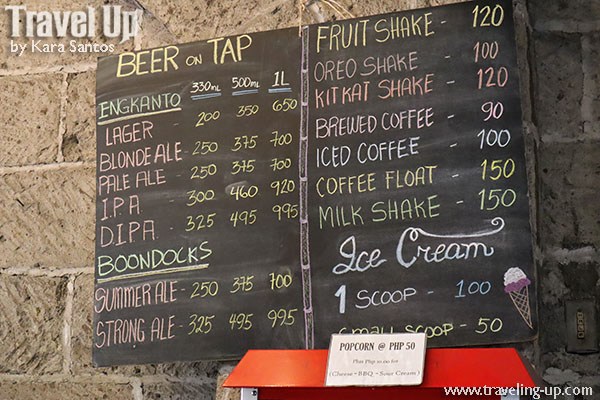 Travel Up
by Kara Santos
BEER ON TAP
330ML 500ML 1L
ENGKANTO
LAGER 200 350 650
BLONDE ALE - 250 375 700
PALE ALE - 250 375 700
I.P.A - 300 460 920
D.I.P.A - 325 495 995
BOONDOCKS
SUMMER ALE - 250 375 700
STRONG ALE - 325 495 995
FRUIT SHAKE - 120
OREO SHAKE - 100
KITKAT SHAKE - 120
BREWED COFFEE - 90
ICED COFFEE - 100
COFFEE FLOAT - 150
MILK SHAKE - 150
Ice Cream
1 SCOOP - 100
SMALL SCOOP - 50
POPCORN @ PHP 50
Plus Php 10.00 for
(Cheese - BBQ - Sour Cream)
www.traveling-up.com